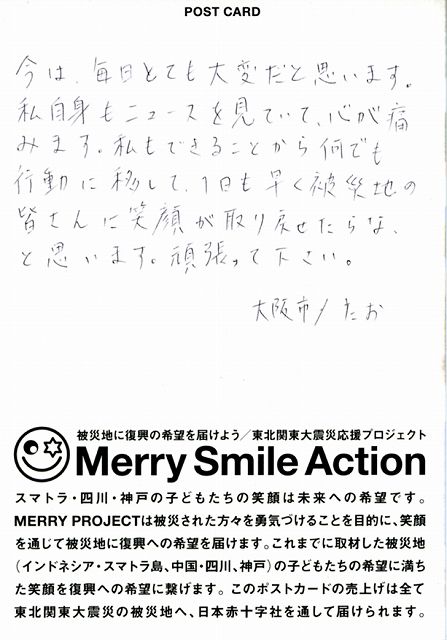 POST CARD
今は、毎日とても大変だと思います。
私自身もニュースを見ていて、心が痛
みます。私もできることから何でも
行動に移して、1日も早く被災地の
皆さんに笑顔が取り戻せたらな、
と思います。頑張って下さい。
大阪市/たお
被災地に復興の希望を届けよう/東北関東大震災応援プロジェクト
Merry Smile Action
スマトラ・四川・神戸の子どもたちの笑顔は未来への希望です。
MERRY PROJECTは被災された方々を勇気づけることを目的に、笑顔
を通じて被災地に復興への希望を届けます。これまでに取材した被災地
(インドネシア・スマトラ島、中国・四川、神戸)の子どもたちの希望に満ち
た笑顔を復興への希望に繋げます。このポストカードの売上げは全て
東北関東大震災の被災地へ、日本赤十字社を通して届けられます。